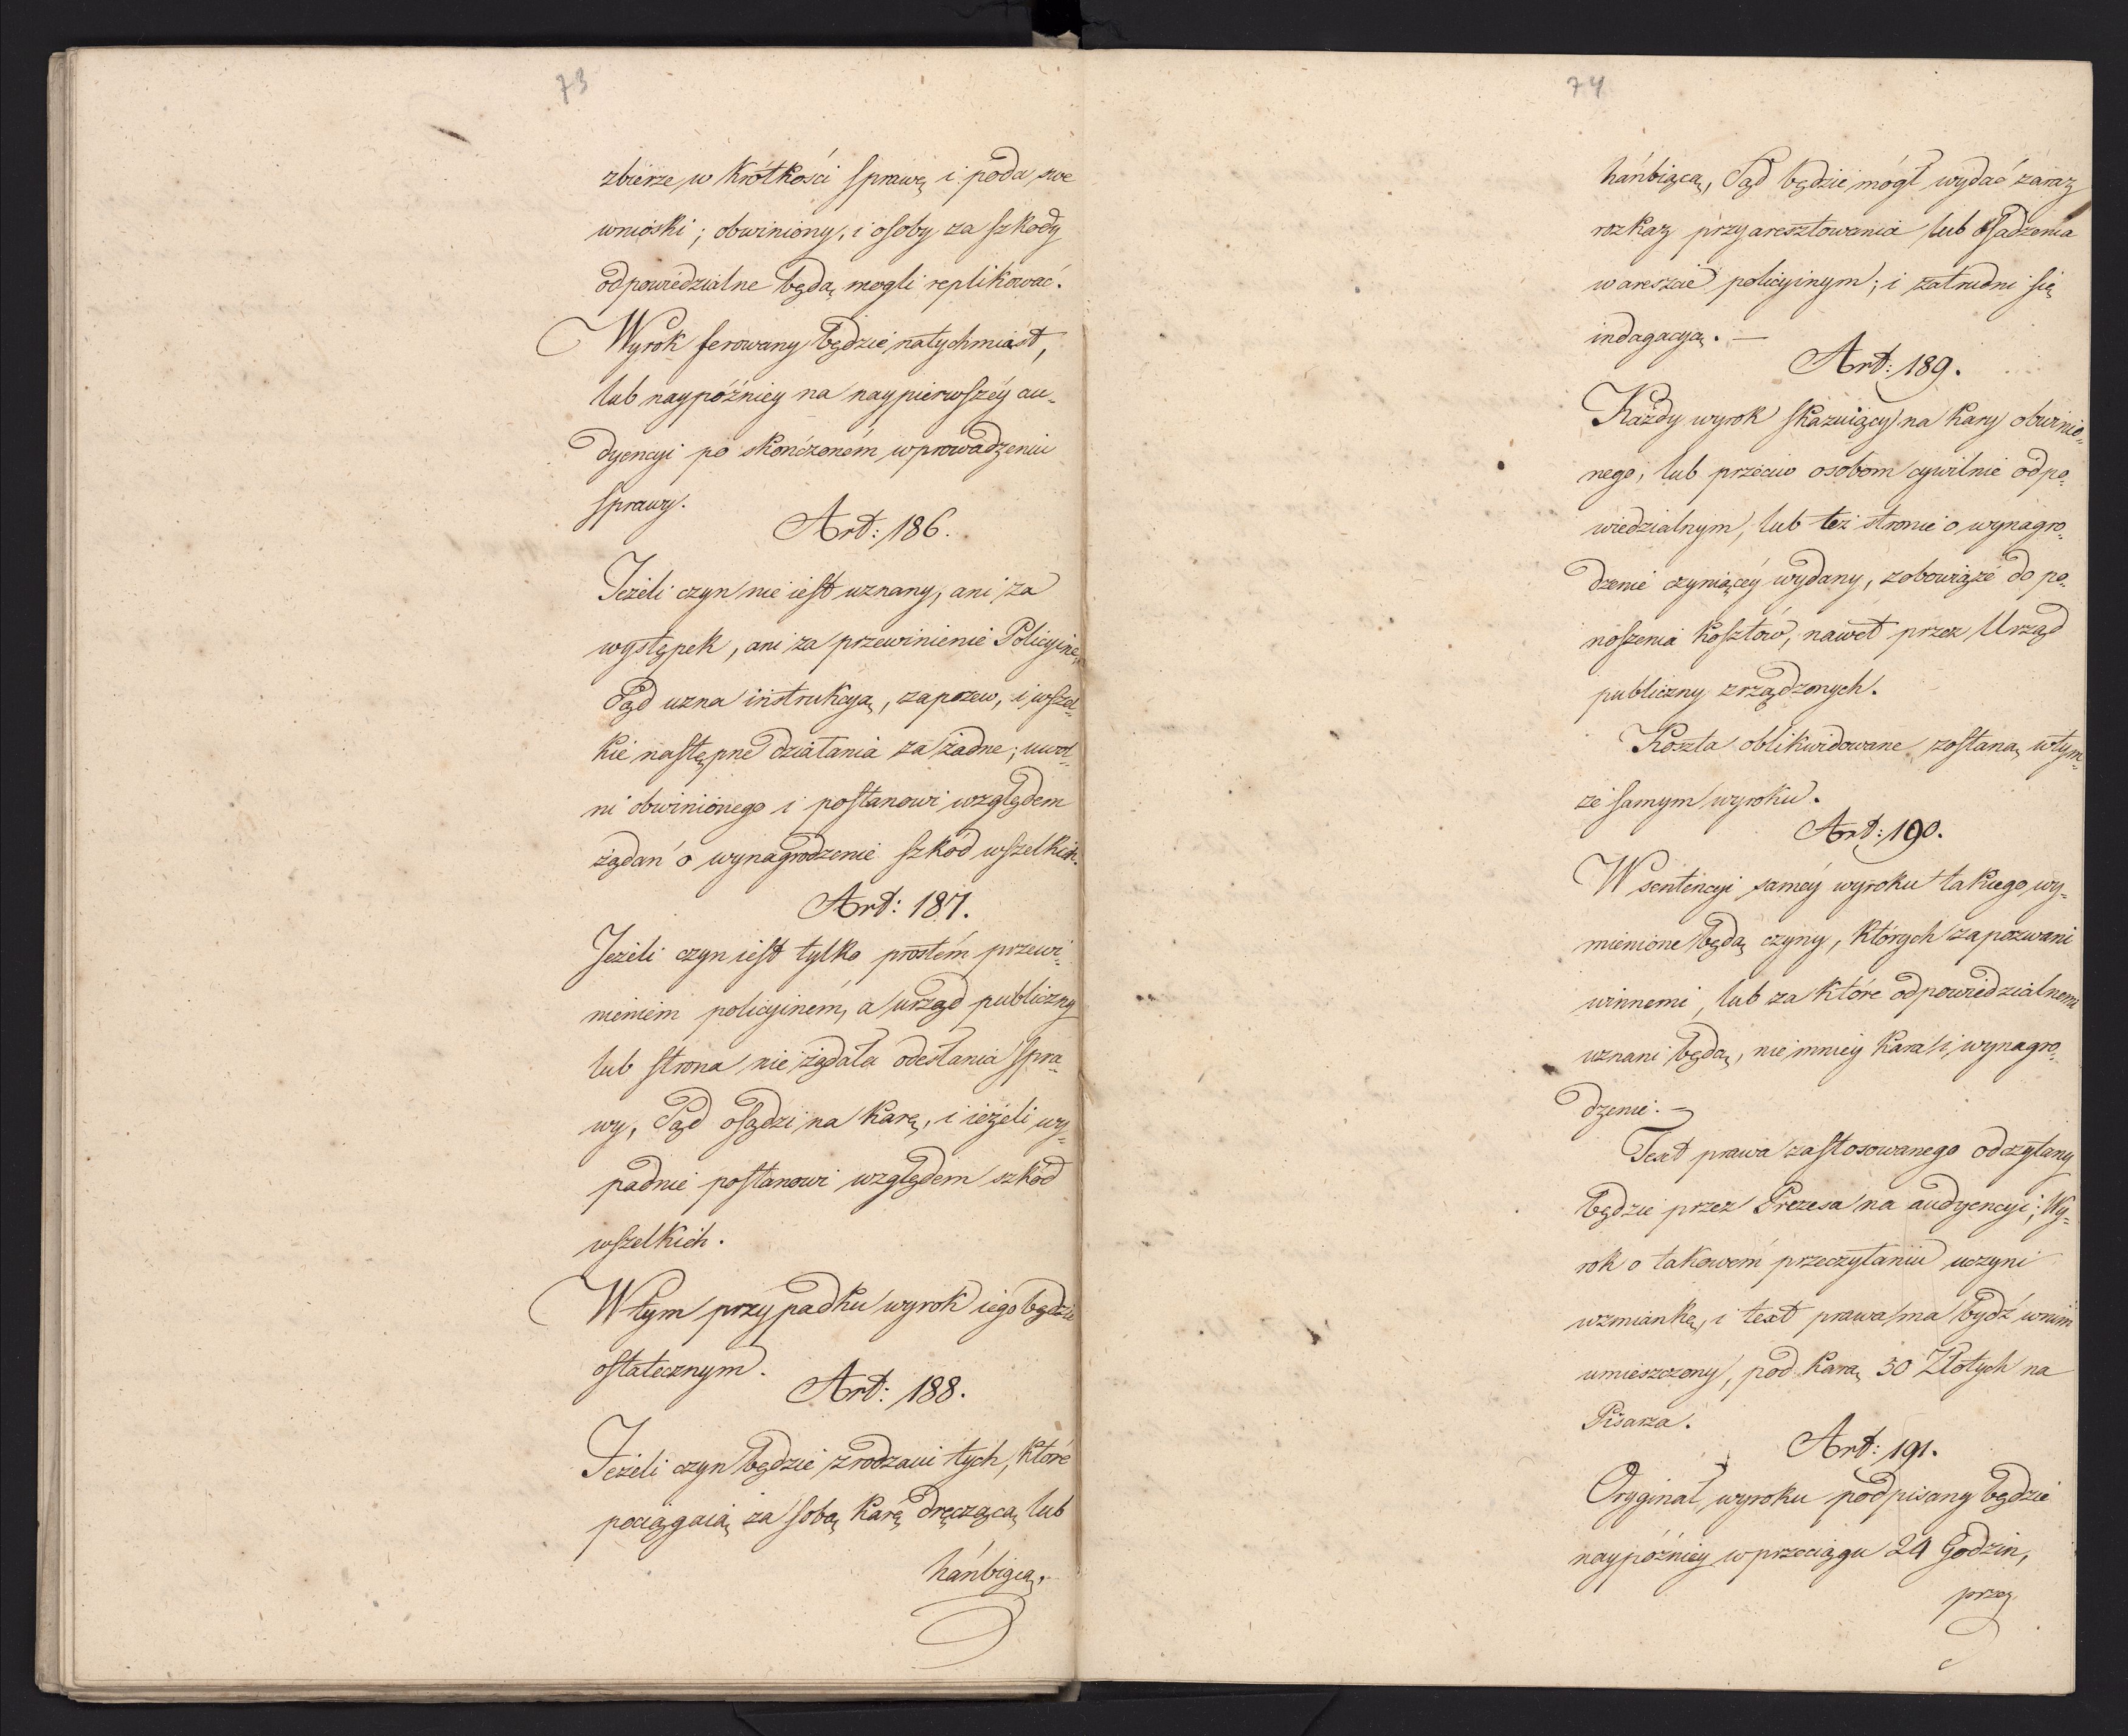 73
zbierze w krótkości sprawę i poda swe
wnioski; obwiniony, i osoby za szkody
odpowiedzialne będą mogli replikować.
Wyrok ferowany będzie natychmiast,
lub naypóźniey na naypierwszéy au-
dyencyi po skończoném wprowadzeniu
sprawy.
Art: 186.
Jeżeli czyn nie iest uznany, ani za
występek, ani za przewinienie Policyine,
Sąd uzna instrukcyą, zapozew, i wszel-
kie następne działania za żadne; uwol-
ni obwinionego i postanowi względem
żądań o wynagrodzenie szkód wszelkich.
Art: 187.
Jeżeli czyn iest tylko prostém przewi-
nieniem policyiném, a urząd publiczny
lub strona nie żądała odesłania spra-
wy, Sąd osądzi na karę, i ieżeli wy-
padnie postanowi względem szkód
wszelkich.
W tym przypadku wyrok iego będzie
ostatecznym.
Art: 188.
Jeżeli czyn będzie z rodzaui tych, które
pociągaią za sobą karę dręczącą lub
hańbiącą,
74
hańbiącą, Sąd będzie mógł wydać zaraz
rozkaz przyaresztowania lub osadzenia
w areszcie policyinym; i zatrudni się
indagacyą. —
Art: 189.
Każdy wyrok skazuiący na kary obwinio-
nego, lub przeciw osobom cywilnie odpo-
wiedzialnym, lub też stronie o wynagro-
dzenie czyniącéy wydany, zobowiąże do po-
noszenia kosztów, nawet przez Urząd
publiczny zrządzonych.
Koszta oblikwidowane zostaną w tym-
że samym wyroku.
Art: 190.
W sentencyi saméy wyroku takiego wy-
mienione będą czyny, których zapozwani
winnemi, lub za które odpowiedzialnemi
uznani będą, nie mniey kara i wynagro-
dzenie. —
Text prawa zastosowanego odczytany
będzie przez Prezesa na audyencyi; Wy-
rok o takowém przeczytaniu uczyni
wzmiankę, i text prawa ma bydź w nim
umieszczony, pod karą 50 Złotych na
Pisarza.
Art: 191.
Oryginał wyroku podpisany będzie
naypóźniey w przeciągu 24 Godzin,
przez